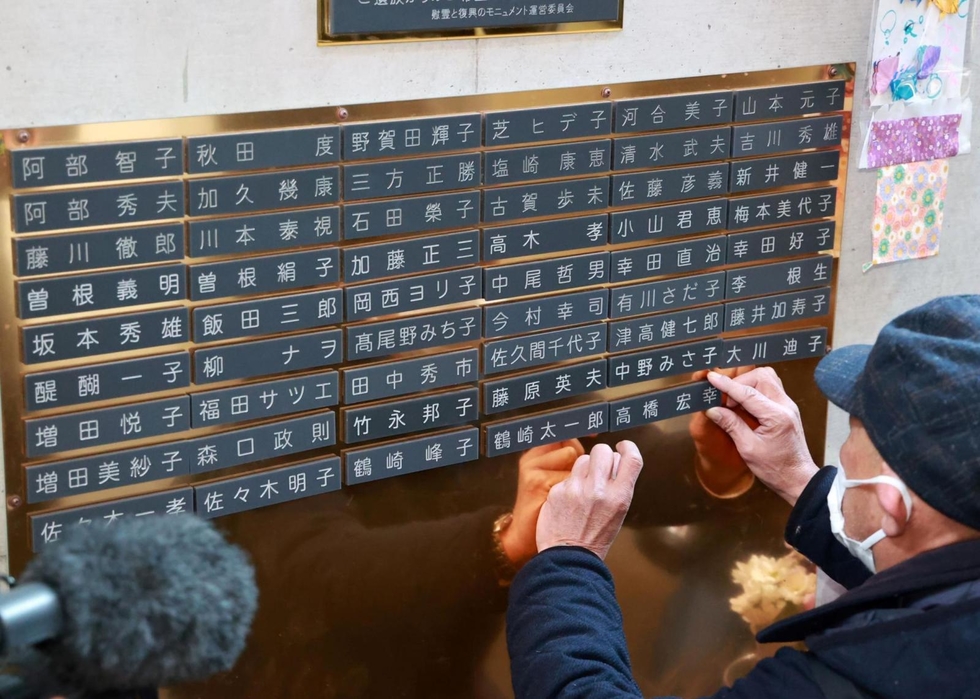 慰霊と復興のモニュメント運営委員会
阿部智子 秋田度 野賀田輝子 芝ヒデ子 河合美子 山本元子
阿部秀夫 加久幾康 三方正勝 塩崎康恵 清水武夫 吉川秀雄
藤川徹郎 川本泰視 石田榮子 古賀歩未 佐藤彦義 新井健一
曽根義明 曽根絹子 加藤正三 高木孝 小山君恵 梅本美代子
坂本秀雄 飯田三郎 岡西ヨリ子 中尾哲男 幸田直治 幸田好子
醍醐一子 柳ナヲ 髙尾野みち子 今村幸司 有川さだ子 李根生
増田悦子 福田サツエ 田中秀市 佐久間千代子 津高健七郎 藤井加寿子
増田美紗子 森口政則 竹永邦子 藤原英夫 中野みさ子 大川迪子
佐々木一孝 佐々木明子 鶴崎峰子 鶴崎太一郎 高橋宏幸